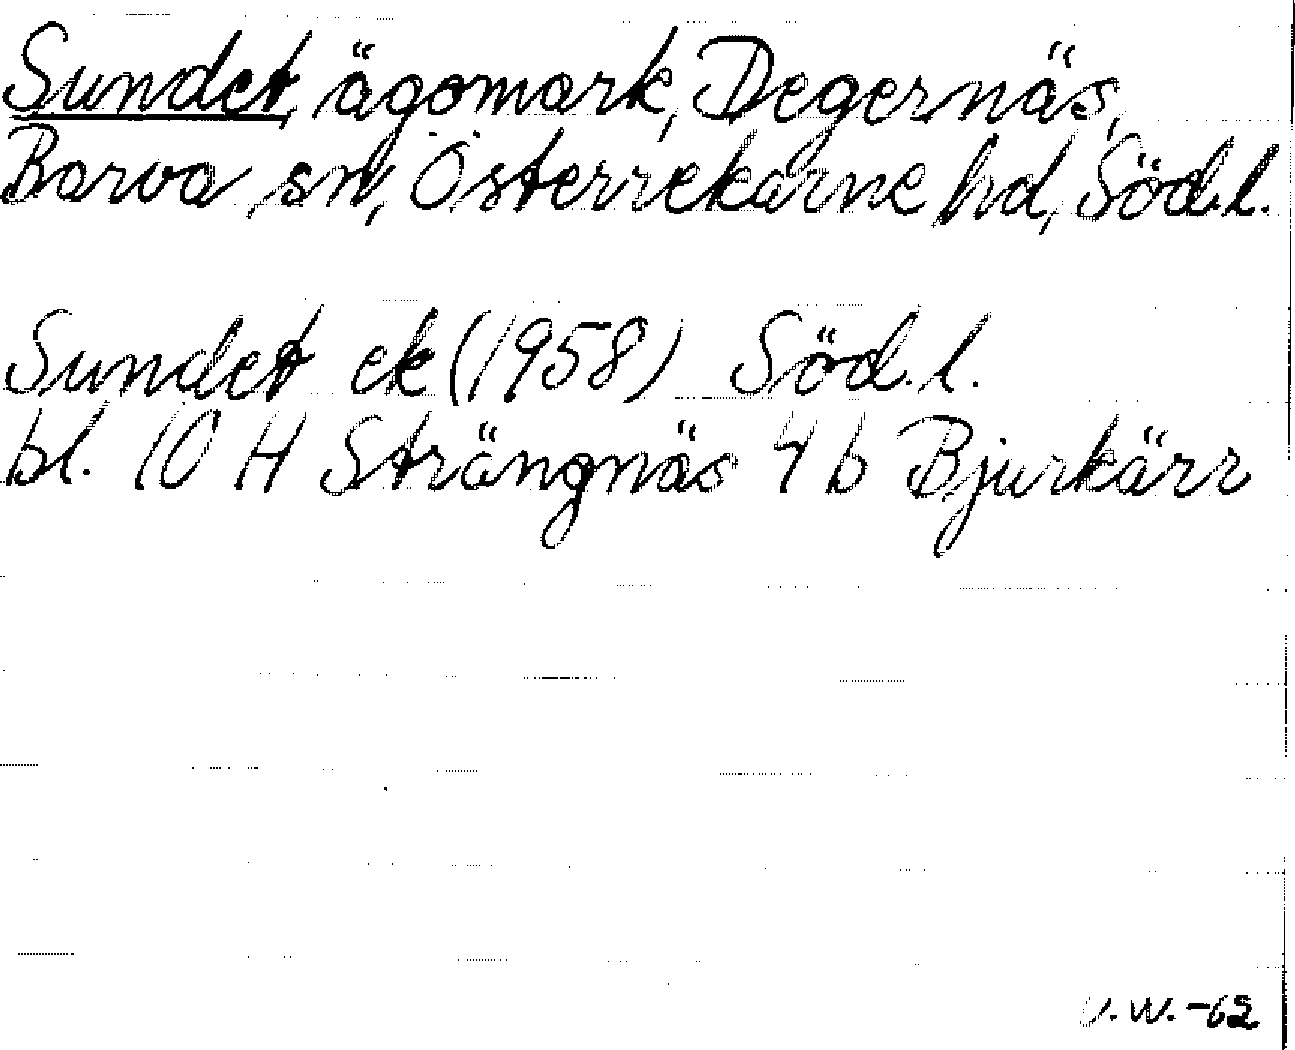 Sundet, ägomark, Degernäs,
Barva sn, Österrekarne hd, Söd.l.
Sundet ek (1958) Söd.l.
bl. 10 H Strängnäs 4 b Bjurkärr
V.W.-62